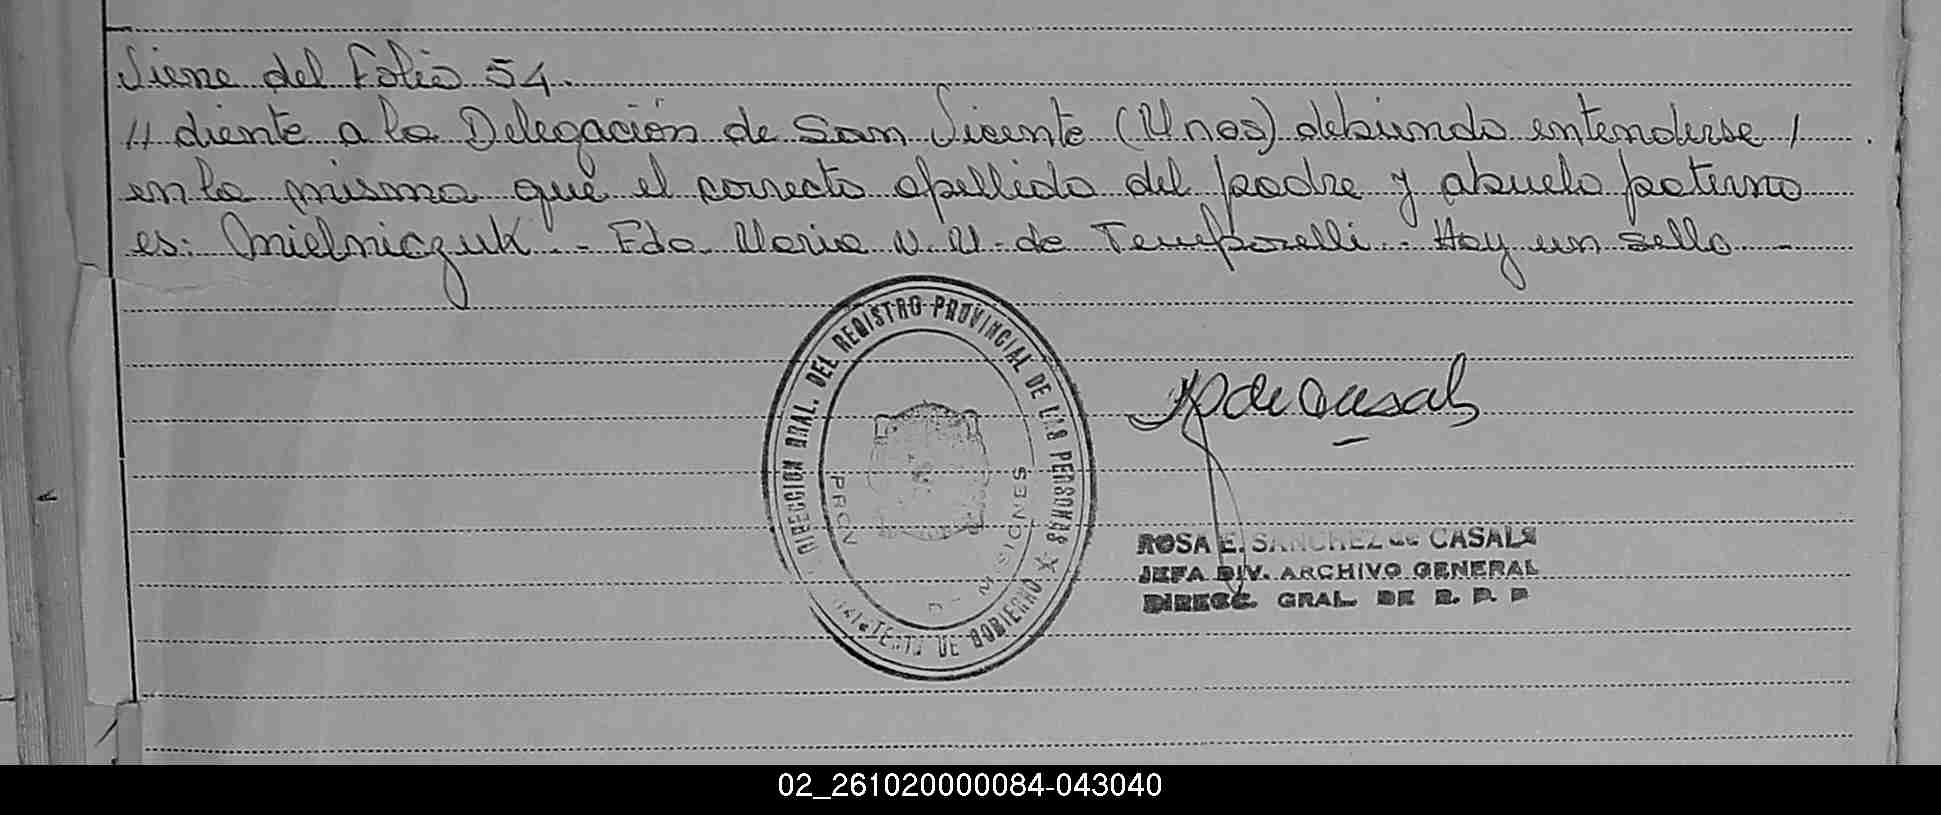 Viene del Folio 54.
// diente a la Delegación de San Vicente (Unos) debiendo entenderse /
en la misma que el correcto apellido del padre y abuelo paterno
es: Omielniczuk.- Fdo. Maria V. U. de Temporelli.- Hay un sello -
DIRECCION GRAL. DEL REGISTRO PROVINCIAL DE LAS PERSONAS
DE GOBIERNO
PROV. DE MISIONES
de Casals
ROSA E. SANCHEZ de CASALS
JEFA DIV. ARCHIVO GENERAL
DIRECC. GRAL. DE R. P. P
02_261020000084-043040